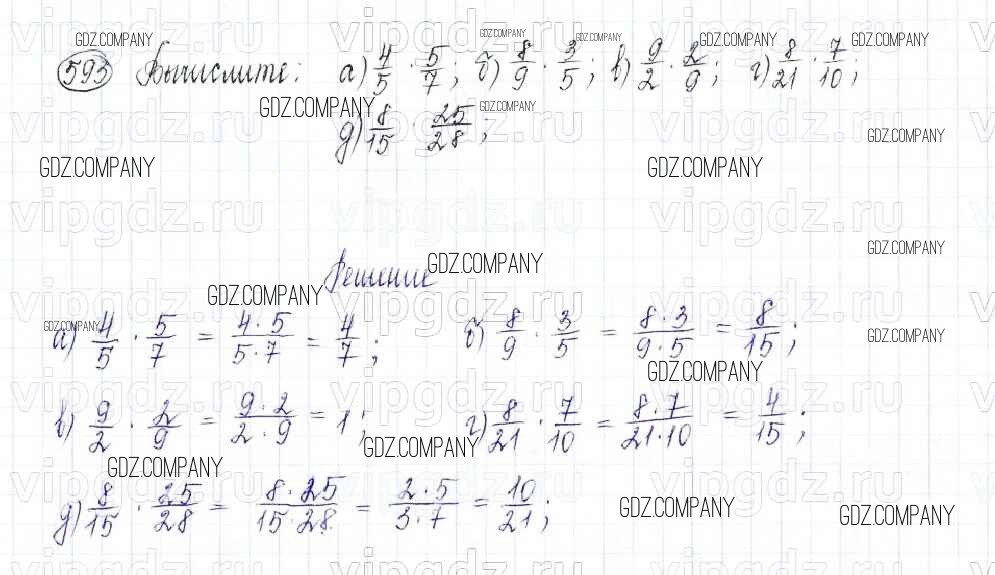 593 Вычислите: а) 4/5 · 5/7; б) 8/9 · 3/5; в) 9/2 · 2/9; г) 8/21 · 7/10;
д) 8/15 · 25/28;
Решение
а) 4/5 · 5/7 = 4·5/5·7 = 4/7; б) 8/9 · 3/5 = 8·3/9·5 = 8/15;
в) 9/2 · 2/9 = 9·2/2·9 = 1; г) 8/21 · 7/10 = 8·7/21·10 = 4/15;
д) 8/15 · 25/28 = 8·25/15·28 = 2·5/3·7 = 10/21;
GDZ.COMPANY
vipgdz.ru